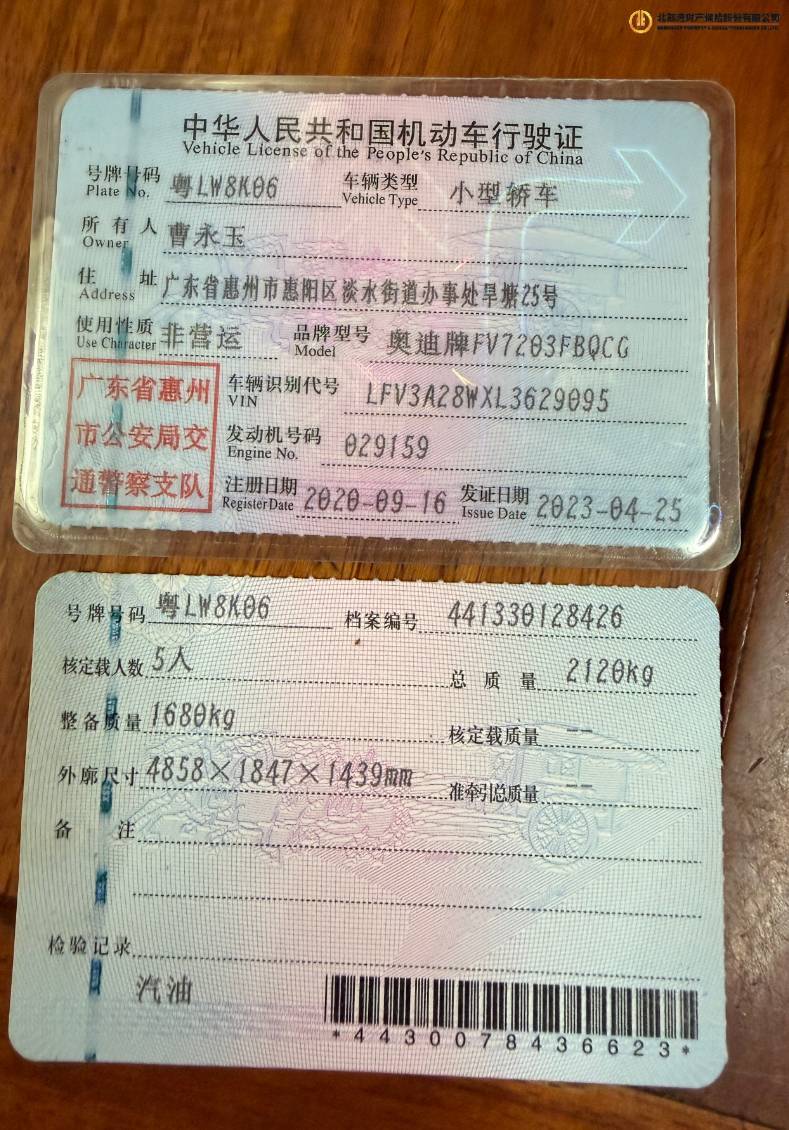 北部湾财产保险股份有限公司
中华人民共和国机动车行驶证
Vehicle License of the People's Republic of China
号牌号码 粤LW8K06 车辆类型 小型轿车
Plate No. Vehicle Type
所有人 曹永玉
Owner
住址 广东省惠州市惠阳区淡水街道办事处旱塘25号
Address
使用性质 非营运 品牌型号 奥迪牌FV7203FBQCG
Use Character Model
广东省惠州
市公安局交
通警察支队
车辆识别代号 LFV3A28WXL3629095
VIN
发动机号码 029159
Engine No.
注册日期 2020-09-16 发证日期 2023-04-25
Register Date Issue Date
号牌号码 粤LW8K06 档案编号 441330128426
核定载人数 5人 总质量 2120kg
整备质量 1680kg 核定载质量 --
外廓尺寸 4858×1847×1439mm 准牵引总质量 --
备注
检验记录
汽油
*4430078436623*